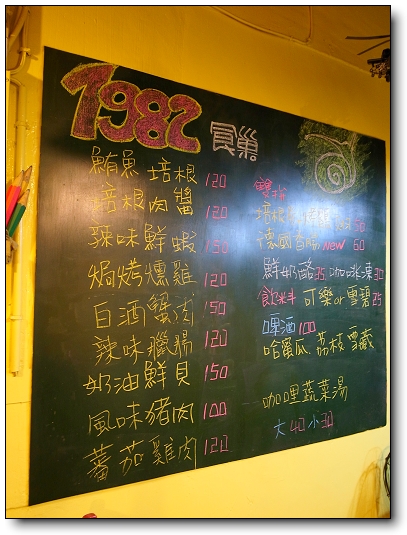 1982 食巢
鮪魚培根 120
培根肉醬 120
辣味鮮蝦 150
焗烤燻雞 120
白酒蟹肉 150
辣味臘腸 120
奶油鮮貝 150
風味豬肉 100
蕃茄雞肉 120
雙拼
培根
德國香腸 new 50
鮮奶酪 35 咖啡凍 30
飲料 可樂or雪碧 25
啤酒 100
哈蜜瓜、荔枝雪藏
咖哩蔬菜湯
大40小30